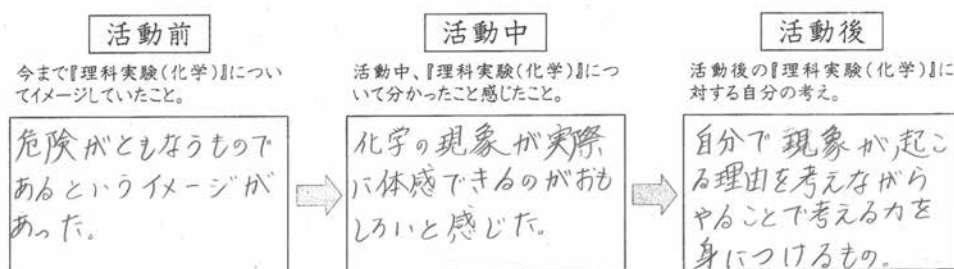 活動前
今まで『理科実験(化学)』につい
てイメージしていたこと。
危険がともなうもので
あるというイメージが
あった。
活動中
活動中、『理科実験(化学)』につ
いて分かったこと感じたこと。
化学の現象が実際
に体感できるのがおも
しろいと感じた。
活動後
活動後の『理科実験(化学)』に
対する自分の考え。
自分で現象が起こ
る理由を考えながら
やることで考える力を
身につけるもの。